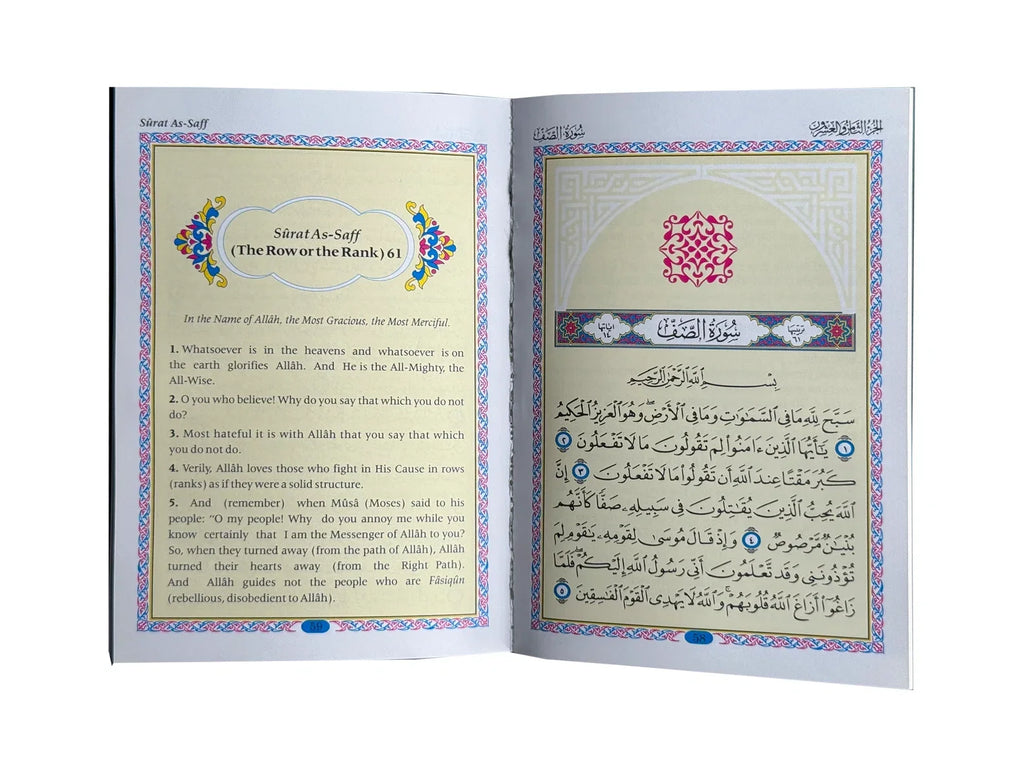 Sûrat As-Saff
Sûrat As-Saff
(The Row or the Rank) 61
In the Name of Allâh, the Most Gracious, the Most Merciful.
1. Whatsoever is in the heavens and whatsoever is on
the earth glorifies Allâh. And He is the All-Mighty, the
All-Wise.
2. O you who believe! Why do you say that which you do not
do?
3. Most hateful it is with Allâh that you say that which
you do not do.
4. Verily, Allâh loves those who fight in His Cause in rows
(ranks) as if they were a solid structure.
5. And (remember) when Mûsâ (Moses) said to his
people: “O my people! Why do you annoy me while you
know certainly that I am the Messenger of Allâh to you?
So, when they turned away (from the path of Allâh), Allâh
turned their hearts away (from the Right Path).
And Allâh guides not the people who are Fâsiqûn
(rebellious, disobedient to Allâh).
59
الجزء الثامن والعشرون
سُورَةُ الصَّفِّ
ترتيبها ٦١
سُورَةُ الصَّفِّ
اياتها ١٤
بِسْمِ ٱللَّهِ ٱلرَّحْمَٰنِ ٱلرَّحِيمِ
سَبَّحَ لِلَّهِ مَا فِى ٱلسَّمَٰوَٰتِ وَمَا فِى ٱلْأَرْضِ ۖ وَهُوَ ٱلْعَزِيزُ ٱلْحَكِيمُ
١ يَٰٓأَيُّهَا ٱلَّذِينَ ءَامَنُوا۟ لِمَ تَقُولُونَ مَا لَا تَفْعَلُونَ ٢
كَبُرَ مَقْتًا عِندَ ٱللَّهِ أَن تَقُولُوا۟ مَا لَا تَفْعَلُونَ ٣ إِنَّ
ٱللَّهَ يُحِبُّ ٱلَّذِينَ يُقَٰتِلُونَ فِى سَبِيلِهِۦ صَفًّا كَأَنَّهُم
بُنْيَٰنٌ مَّرْصُوصٌ ٤ وَإِذْ قَالَ مُوسَىٰ لِقَوْمِهِۦ يَٰقَوْمِ لِمَ
تُؤْذُونَنِى وَقَد تَّعْلَمُونَ أَنِّى رَسُولُ ٱللَّهِ إِلَيْكُمْ ۖ فَلَمَّا
زَاغُوٓا۟ أَزَاغَ ٱللَّهُ قُلُوبَهُمْ ۚ وَٱللَّهُ لَا يَهْدِى ٱلْقَوْمَ ٱلْفَٰسِقِينَ ٥
58